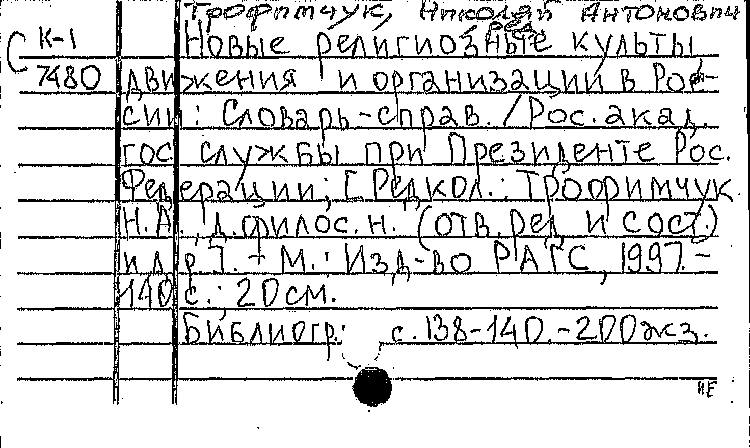 Трофимчук, Николай Антонович
ред.
С К-1 Новые религиозные культы,
7480 движения и организации в Рос-
сии: Словарь-справ. / Рос. акад.
гос. службы при Президенте Рос.
Федерации; [Редкол.: Трофимчук
Н.А., д.филос.н. (отв. ред. и сост.)
и др.]. - М.: Изд-во РАГС, 1997. -
140 с.; 20 см.
Библиогр.: с. 138-140. - 200 экз.
НЕ